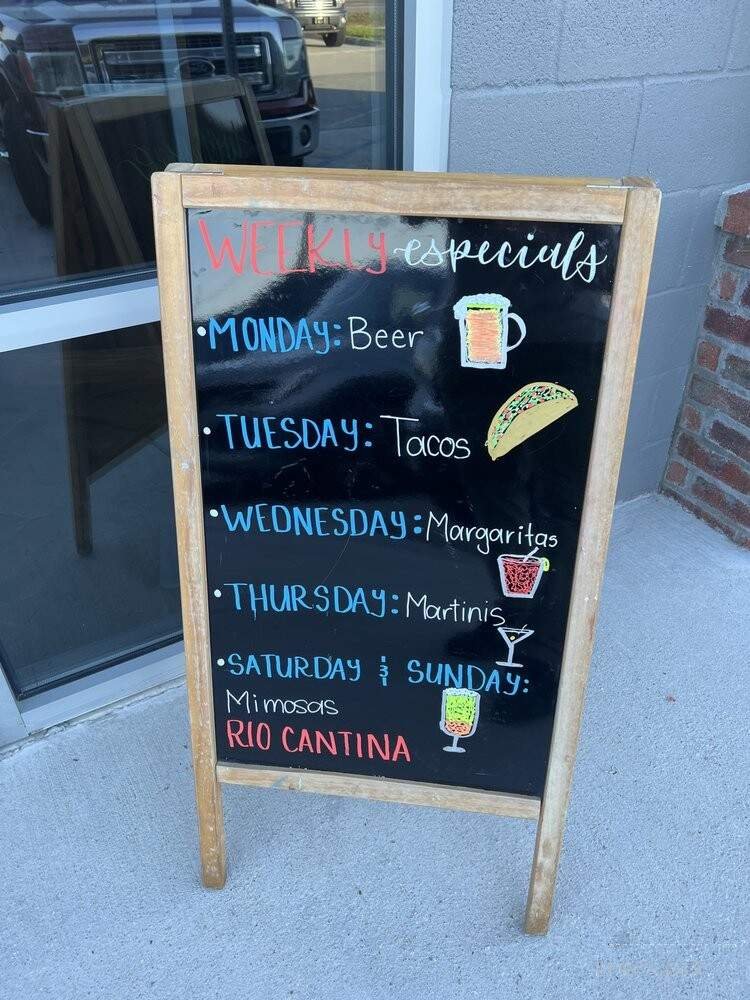 WEEKLY especials
• MONDAY: Beer
• TUESDAY: Tacos
• WEDNESDAY: Margaritas
• THURSDAY: Martinis
• SATURDAY & SUNDAY:
Mimosas
RIO CANTINA